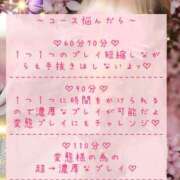 ～コース悩んだら～
♡60分70分♡
1つ1つのプレイ短縮しなが
らも手抜きはしないよッ♡
♡90分♡
1つ1つに時間をかけられる
ので濃厚なプレイが可能だよ
変態プレイにもチャレンジ♡
♡110分♡
変態様の為の
超→濃厚なプレイ